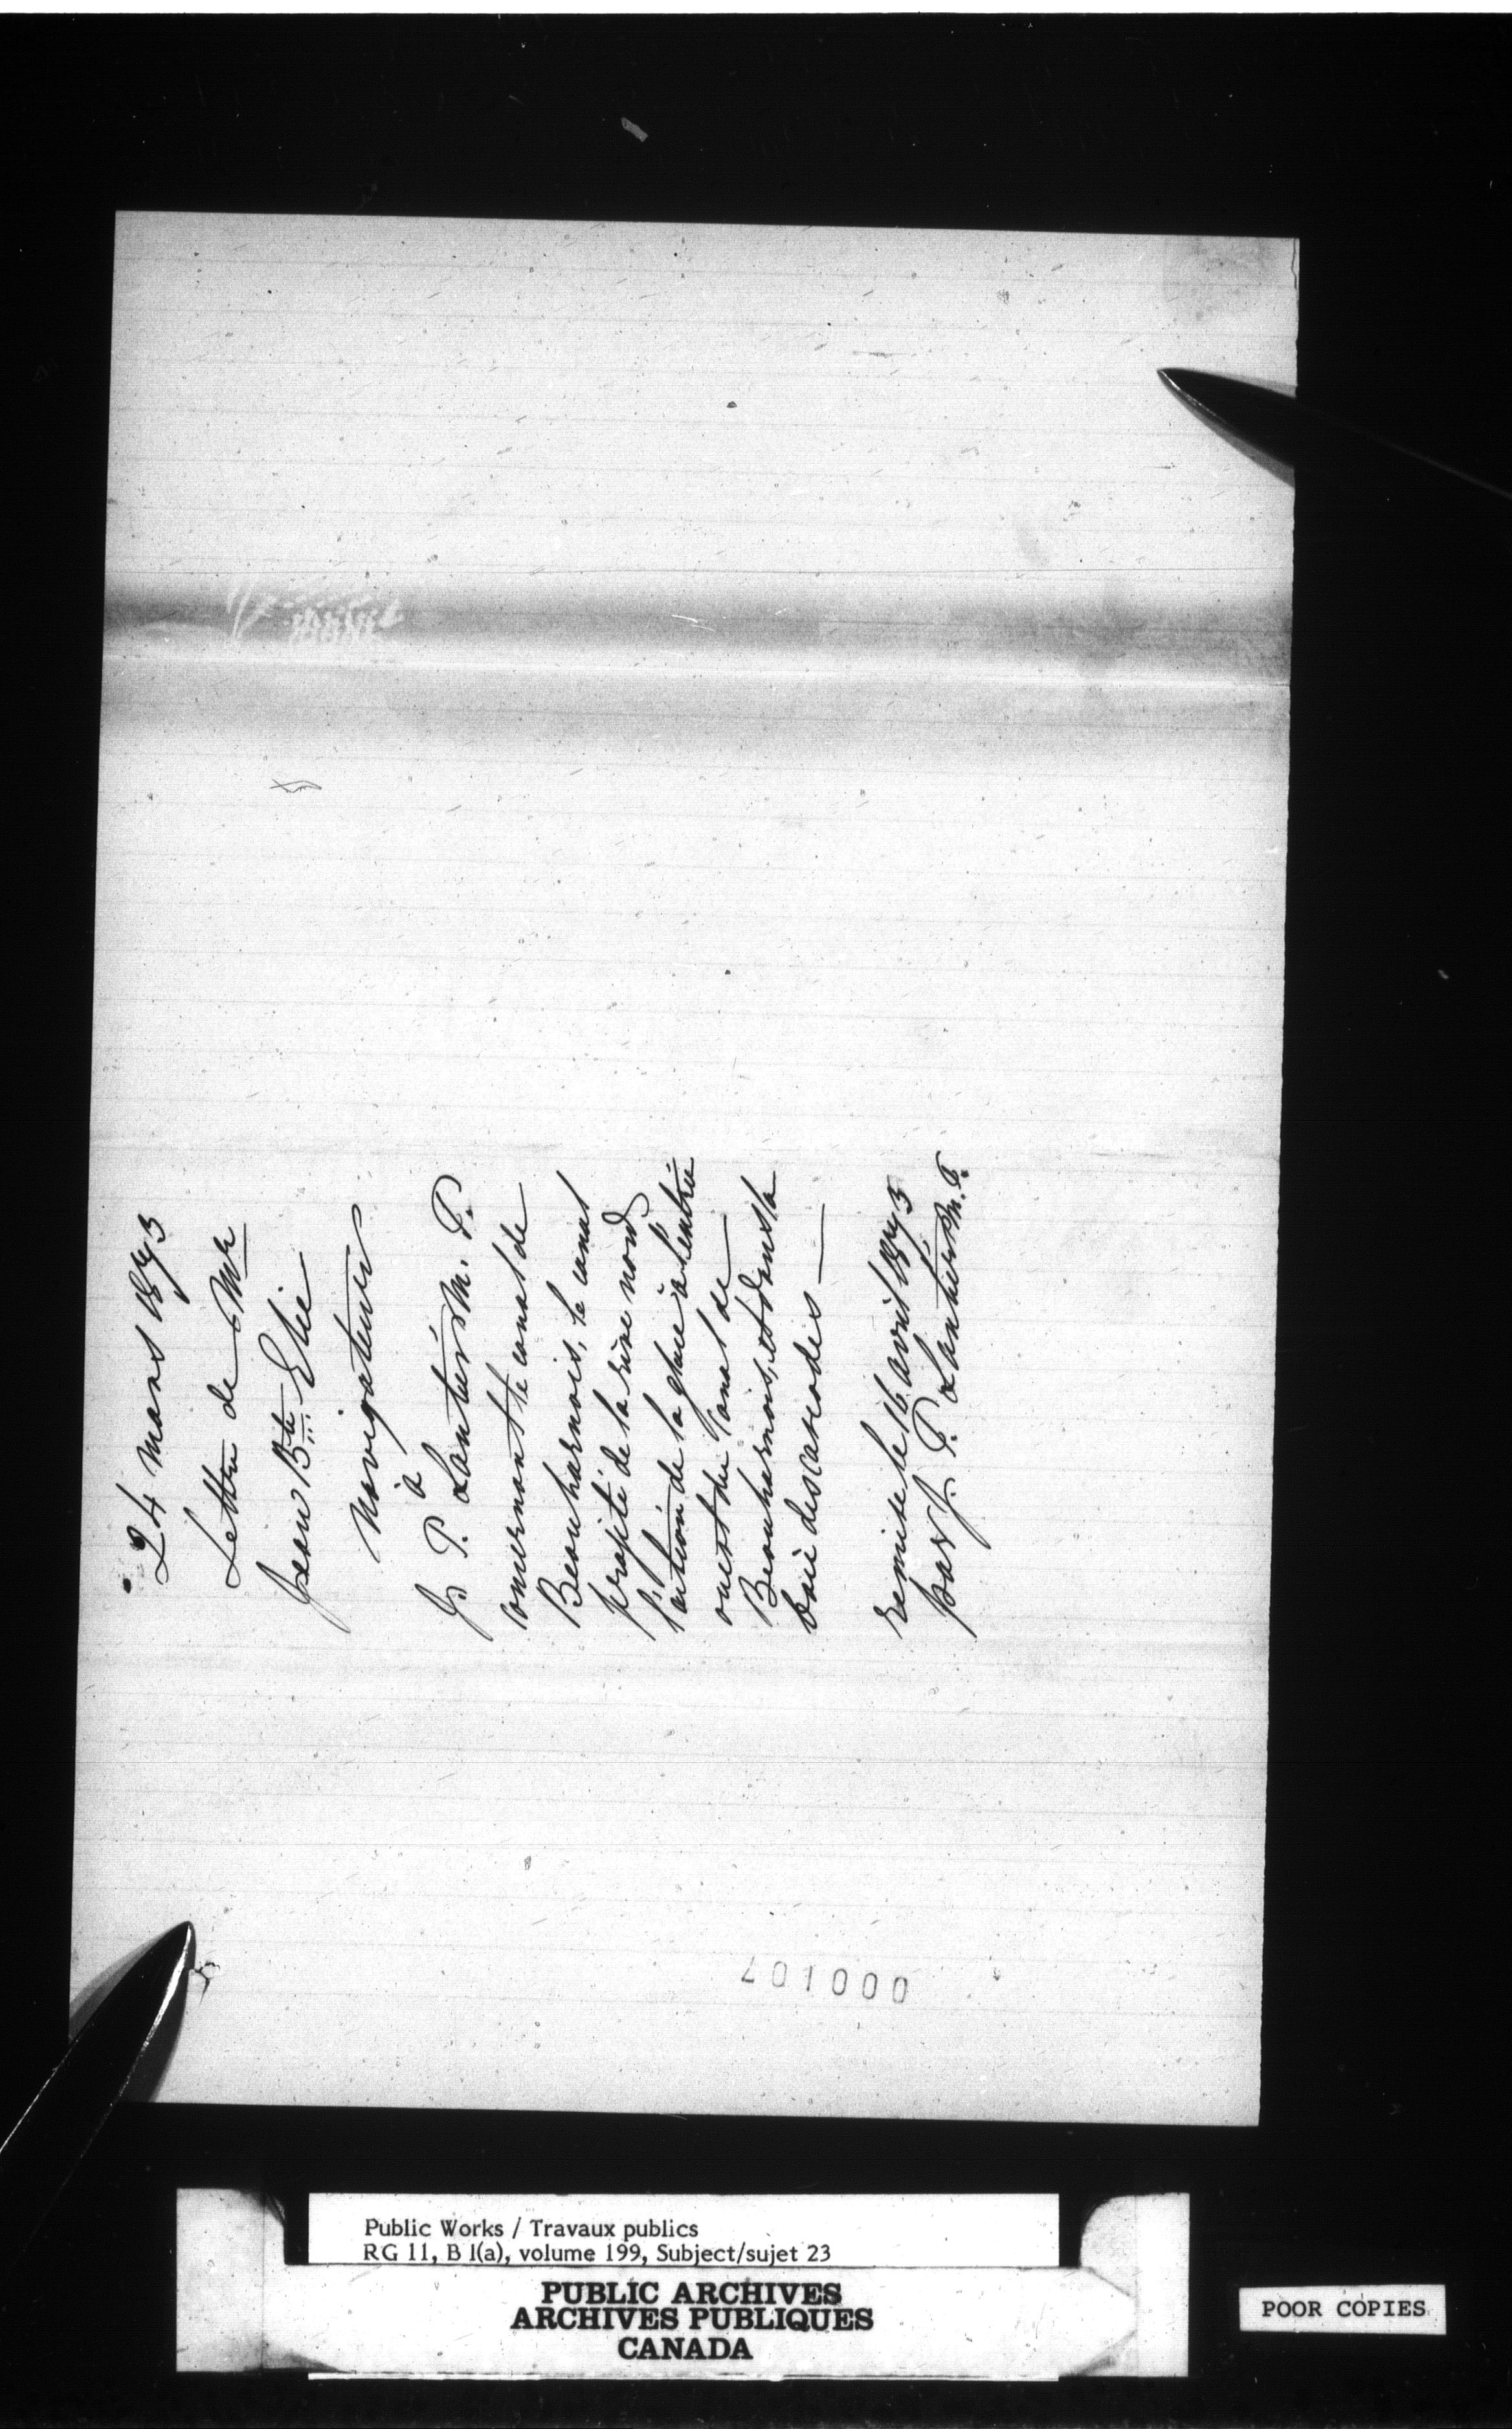 24 Mars 1873
Lettre de Mr
Jean Bte Elie
Navigateur
à
J. P. Lantier M. P.
concernant le canal de
Beauharnois, le canal
projeté de la rive nord
l'action de la glace à l'entrée
ouest du Canal de
Beauharnois, et dans la
baie des
remise le 16 avril 1873
par J. P. Lantier M. P.
000107
Public Works / Travaux publics
RG 11, B 1(a), volume 199, Subject/sujet 23
PUBLIC ARCHIVES
ARCHIVES PUBLIQUES
CANADA
POOR COPIES